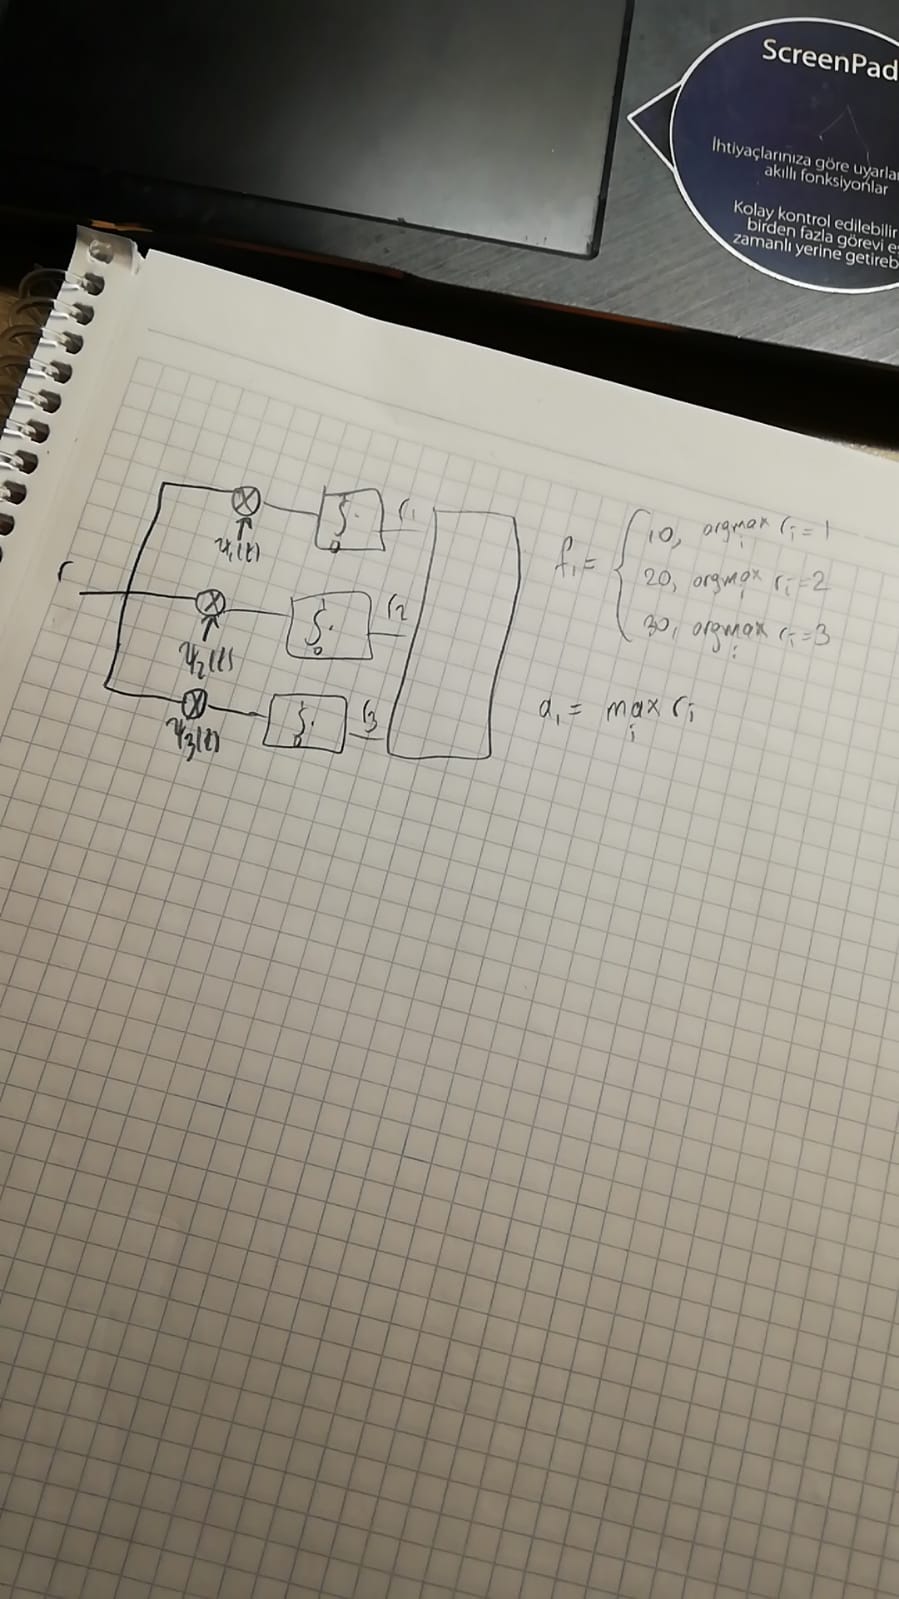 ScreenPad
İhtiyaçlarınıza göre uyarla
akıllı fonksiyonlar
Kolay kontrol edilebilir
birden fazla görevi e
zamanlı yerine getireb
r
ψ₁(t)
∫₀ ·
r₁
ψ₂(t)
∫₀ ·
r₂
ψ₃(t)
∫₀ ·
r₃
f₁ = {
10, argmax rᵢ = 1
i
20, argmax rᵢ = 2
i
30, argmax rᵢ = 3
i
a₁ = max rᵢ
i